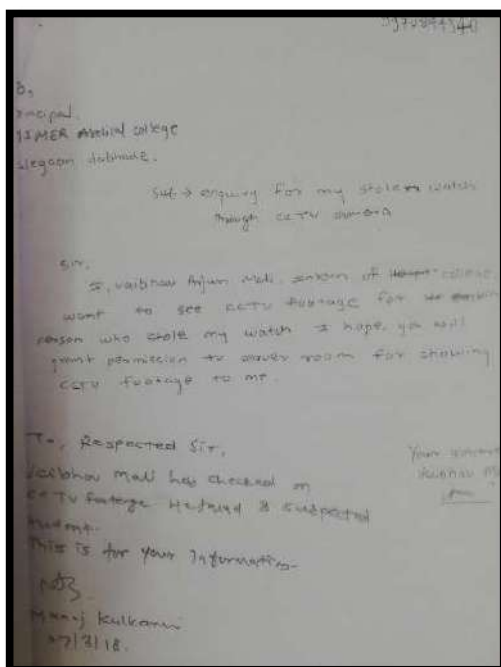 To,
Principal.
MIMER Medical college
Talegaon dabhade.
Sub → enquiry for my stolen watch
through CCTV camera
Sir,
I, Vaibhav Arjun Mali, intern of college,
want to see CCTV footage for
person who stole my watch I hope, you will
grant permission to server room for showing
CCTV footage to me.
To, Respected Sir,
Vaibhav Mali has checked on
CCTV footage He found 3 suspected
student.
This is for your Information
Your
Vaibhav
Manoj Kulkarni
27/3/18.